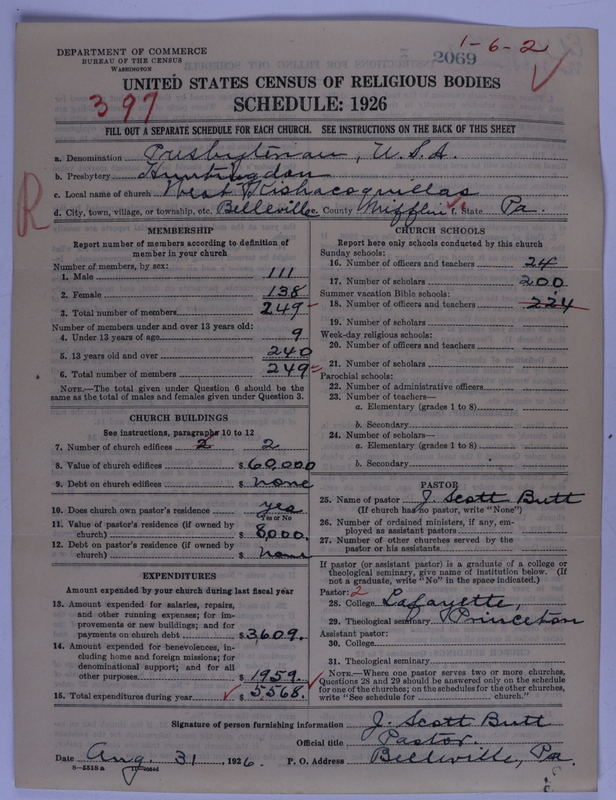 1-6-2
DEPARTMENT OF COMMERCE
BUREAU OF THE CENSUS
WASHINGTON
2069
UNITED STATES CENSUS OF RELIGIOUS BODIES
397
SCHEDULE: 1926
FILL OUT A SEPARATE SCHEDULE FOR EACH CHURCH. SEE INSTRUCTIONS ON THE BACK OF THIS SHEET
a. Denomination Presbyterian, U.S.A.
b. Presbytery Huntingdon
c. Local name of church West Kishacoquillas
R
d. City, town, village, or township, etc. Belleville e. County Mifflin f. State Pa.
MEMBERSHIP
Report number of members according to definition of member in your church
Number of members, by sex:
1. Male 111
2. Female 138
3. Total number of members 249
Number of members under and over 13 years old:
4. Under 13 years of age 9
5. 13 years old and over 240
6. Total number of members 249
NOTE.—The total given under Question 6 should be the same as the total of males and females given under Question 3.
CHURCH BUILDINGS
See instructions, paragraphs 10 to 12
7. Number of church edifices 2 2
8. Value of church edifices $ 60,000
9. Debt on church edifices $ none
10. Does church own pastor's residence yes
Yes or No
11. Value of pastor's residence (if owned by church) $ 8,000.
12. Debt on pastor's residence (if owned by church) $ none
EXPENDITURES
Amount expended by your church during last fiscal year
13. Amount expended for salaries, repairs, and other running expenses; for improvements or new buildings; and for payments on church debt $ 3,609.
14. Amount expended for benevolences, including home and foreign missions; for denominational support; and for all other purposes $ 1959.
15. Total expenditures during year $ 5568.
CHURCH SCHOOLS
Report here only schools conducted by this church
Sunday schools:
16. Number of officers and teachers 24
17. Number of scholars 200
Summer vacation Bible schools:
18. Number of officers and teachers 224
19. Number of scholars
Week-day religious schools:
20. Number of officers and teachers
21. Number of scholars
Parochial schools:
22. Number of administrative officers
23. Number of teachers—
a. Elementary (grades 1 to 8)
b. Secondary
24. Number of scholars—
a. Elementary (grades 1 to 8)
b. Secondary
PASTOR
25. Name of pastor J. Scott Butt
(If church has no pastor, write "None")
26. Number of ordained ministers, if any, employed as assistant pastors
27. Number of other churches served by the pastor or his assistants
If pastor (or assistant pastor) is a graduate of a college or theological seminary, give name of institution below. (If not a graduate, write "No" in the space indicated.)
Pastor: 2
28. College Lafayette,
29. Theological seminary Princeton
Assistant pastor:
30. College
31. Theological seminary
NOTE.—Where one pastor serves two or more churches, Questions 28 and 29 should be answered only on the schedule for one of the churches; on the schedules for the other churches, write "See schedule for church."
Signature of person furnishing information J. Scott Butt
Official title Pastor.
Date Aug. 31, 1926. P. O. Address Belleville, Pa.
8—5518 a